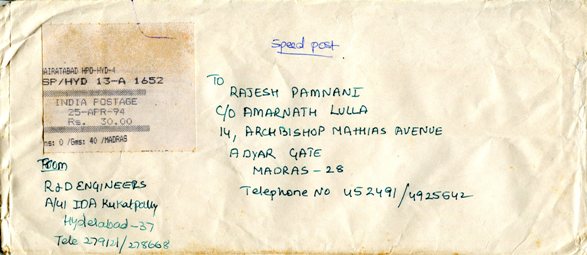 Speed post
AIRATABAD HPO-HYD-4
SP/HYD 13-A 1652
INDIA POSTAGE
25-APR-94
Rs. 30.00
ns: 0 /Gms: 40 /MADRAS
To
RAJESH PAMNANI
C/O AMARNATH LULLA
14, ARCHBISHOP MATHIAS AVENUE
ADYAR GATE
MADRAS - 28
Telephone No 452491/4925542
From
R&D ENGINEERS
A/41 IDA Kukatpally
Hyderabad-37
Tele 279121/278668